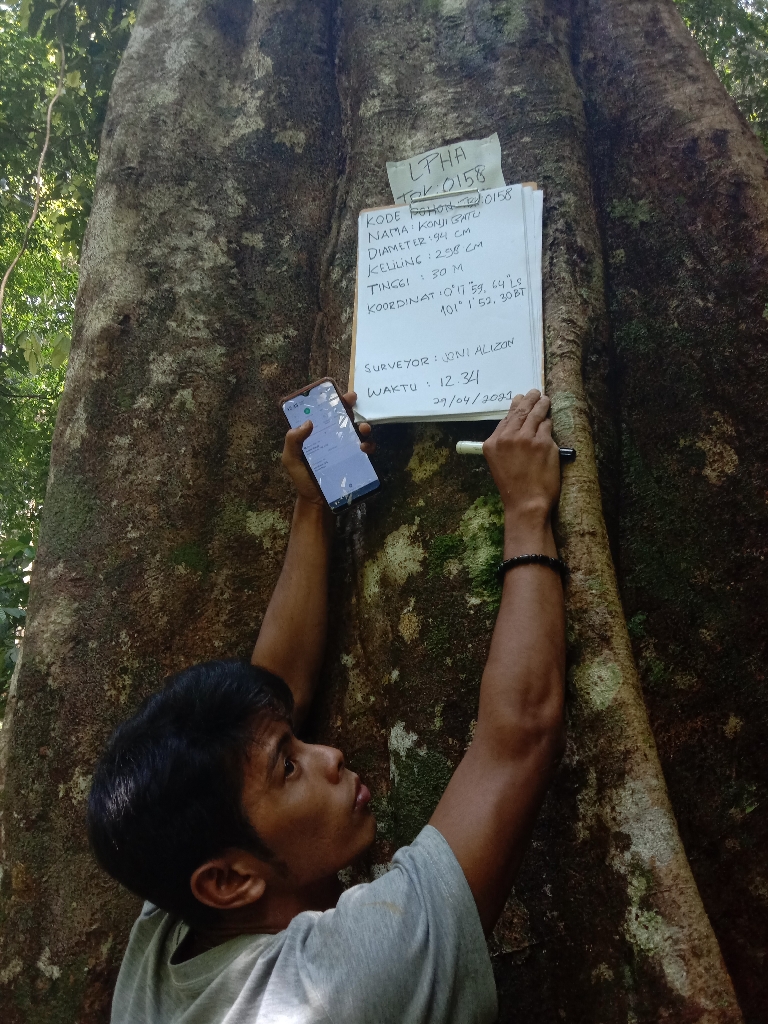 LPHA
TBK.0158
KODE POHON TBK.0158
NAMA : KONJI BATU
DIAMETER : 94 CM
KELILING : 298 CM
TINGGI : 30 M
KOORDINAT : 0° 17' 59, 64" LS
101° 1' 52, 30 BT
SURVEYOR : JONI ALIZON
WAKTU : 12.34
29/04/2021